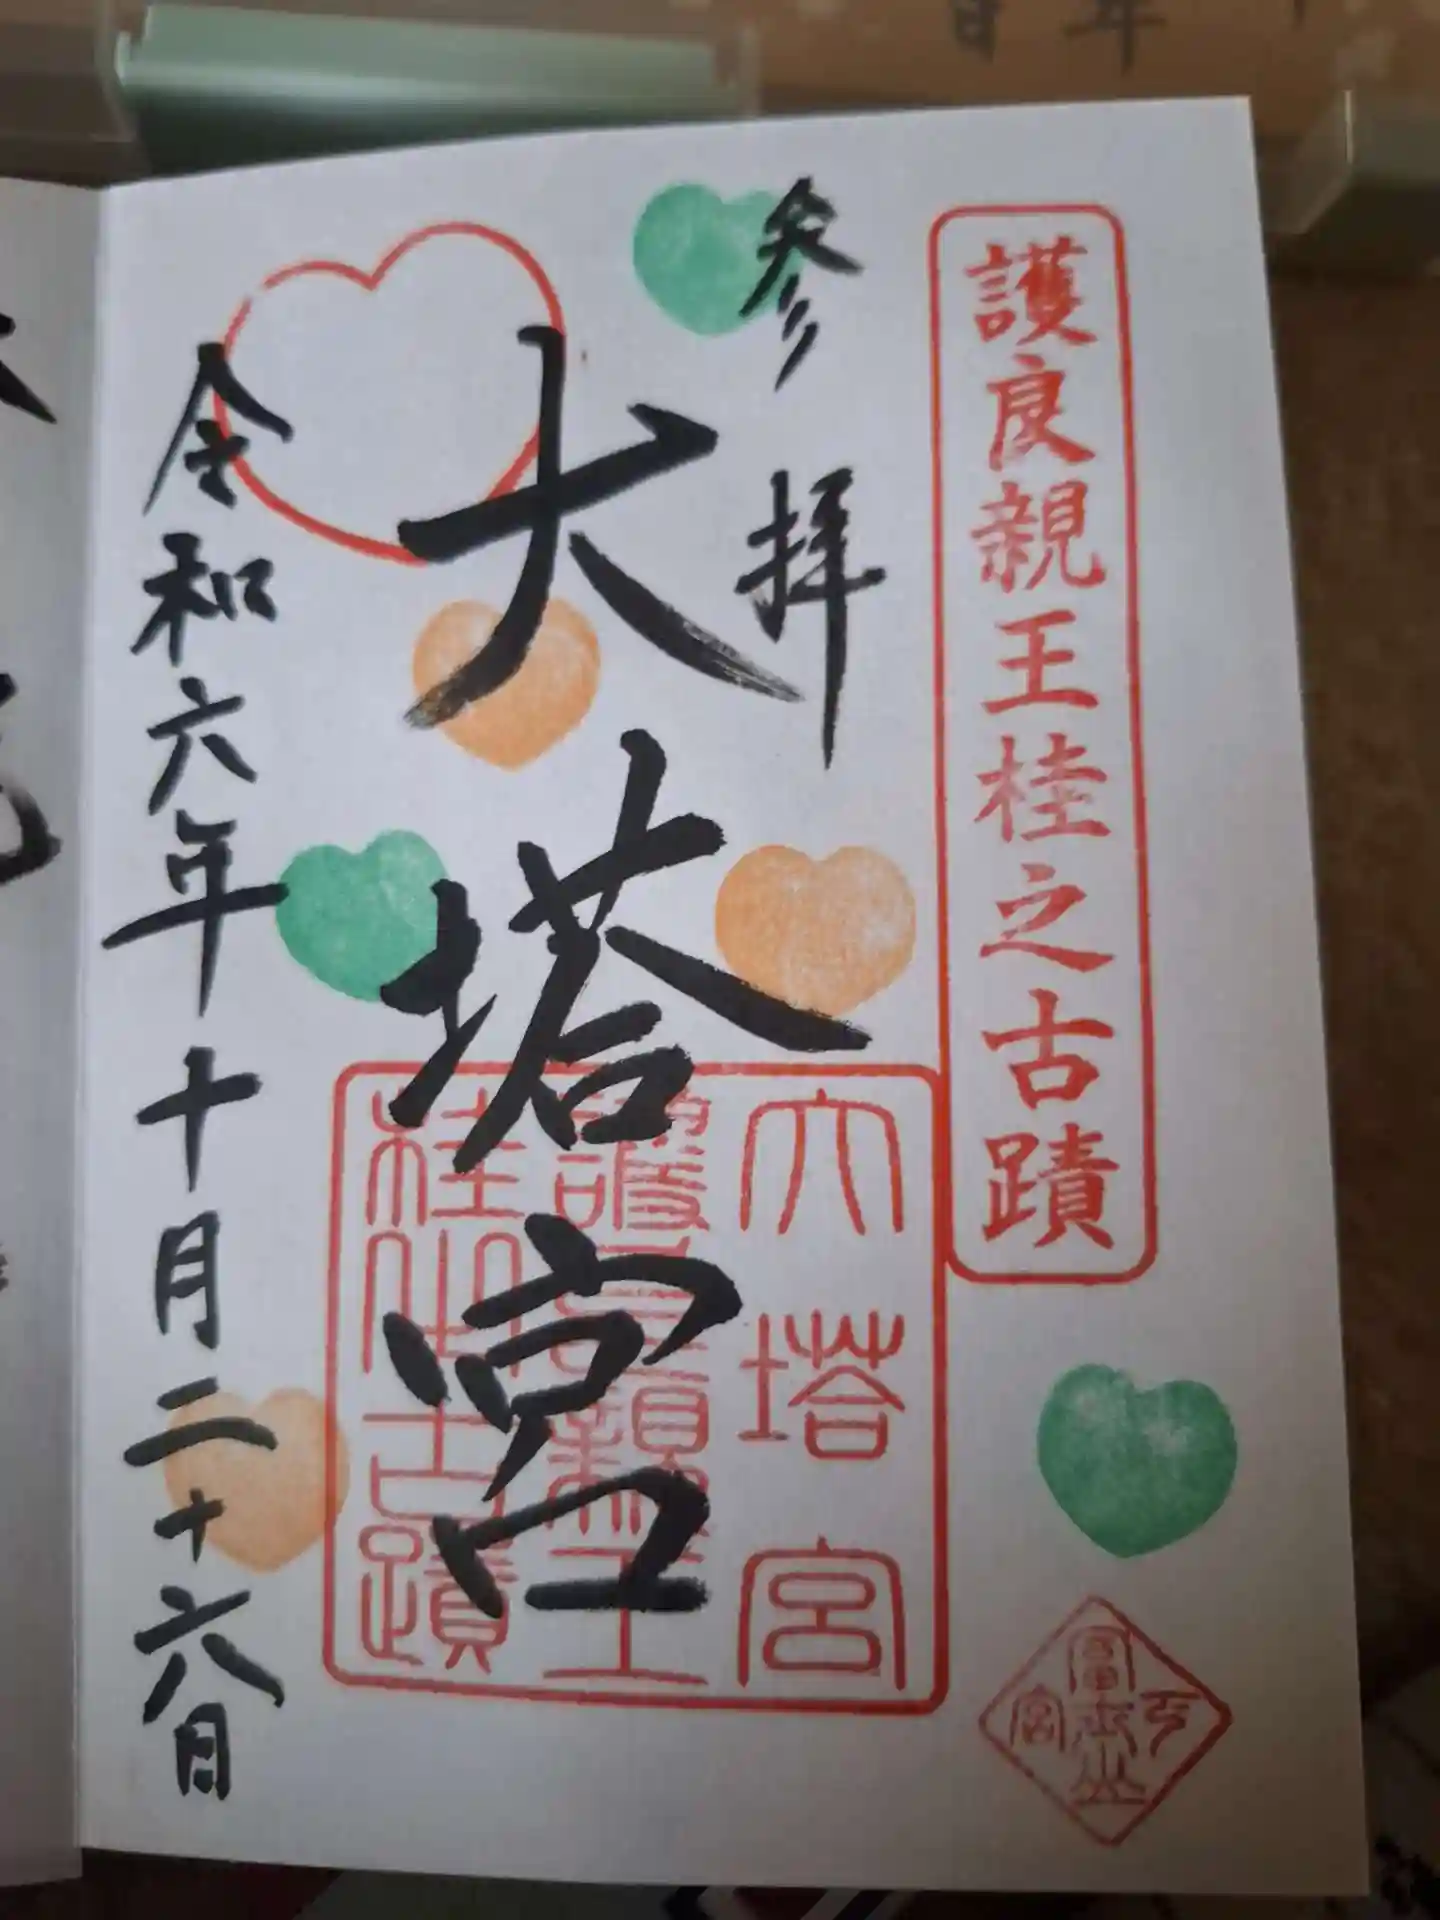 護良親王桂之古蹟
参拝
大塔宮
大塔宮
護良親王
桂之古蹟
令和六年十月二十六日
年